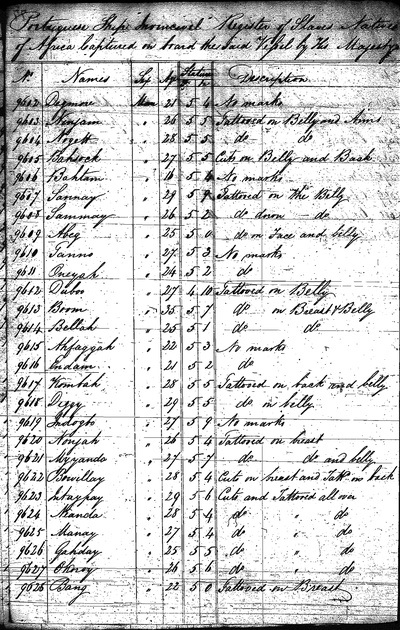 Portuguese Ship Invincivel Register of Slaves Natives
of Africa Captured on board the said Vessel by His Majesty's
No Names Sex Age Stature Description
F. In
9602 Dagmore Man 21 5 4 No marks
9603 " 26 5 5 Tattooed on Belly and Arms
9604 " 28 5 5 do do
9605 " 27 5 5 Cuts on Belly and Back
9606 Bahtam " 16 5 No marks
9607 Sannay " 29 5 Tattooed on the Belly
9608 Sammay " 26 5 2 do down do
9609 " 25 5 0 do on Face and belly
9610 Fanno " 27 5 3 No marks
9611 " 24 5 2 do
9612 Duboo " 27 4 10 Tattooed on Belly
9613 Boom " 35 5 7 do on Breast & Belly
9614 Bellah " 25 5 1 do do
9615 Ahfaggah " 22 5 3 No marks
9616 Indam " 21 5 2 do
9617 Kombah " 28 5 5 Tattooed on back and belly
9618 " 29 5 5 do on belly
9619 Indogbo " 27 5 9 No marks
9620 Nonjah " 26 5 4 Tattooed on breast
9621 " 27 5 7 do do and belly
9622 Bowillay " 28 5 4 Cuts on breast and Tatd on back
9623 " 29 5 6 Cuts and Tattooed all over
9624 Manda " 28 5 4 do " do
9625 Manay " 27 5 4 do " do
9626 Gahday " 25 5 5 do " do
9627 " 26 5 6 do " do
9628 Bang " 22 5 0 Tattooed on Breast